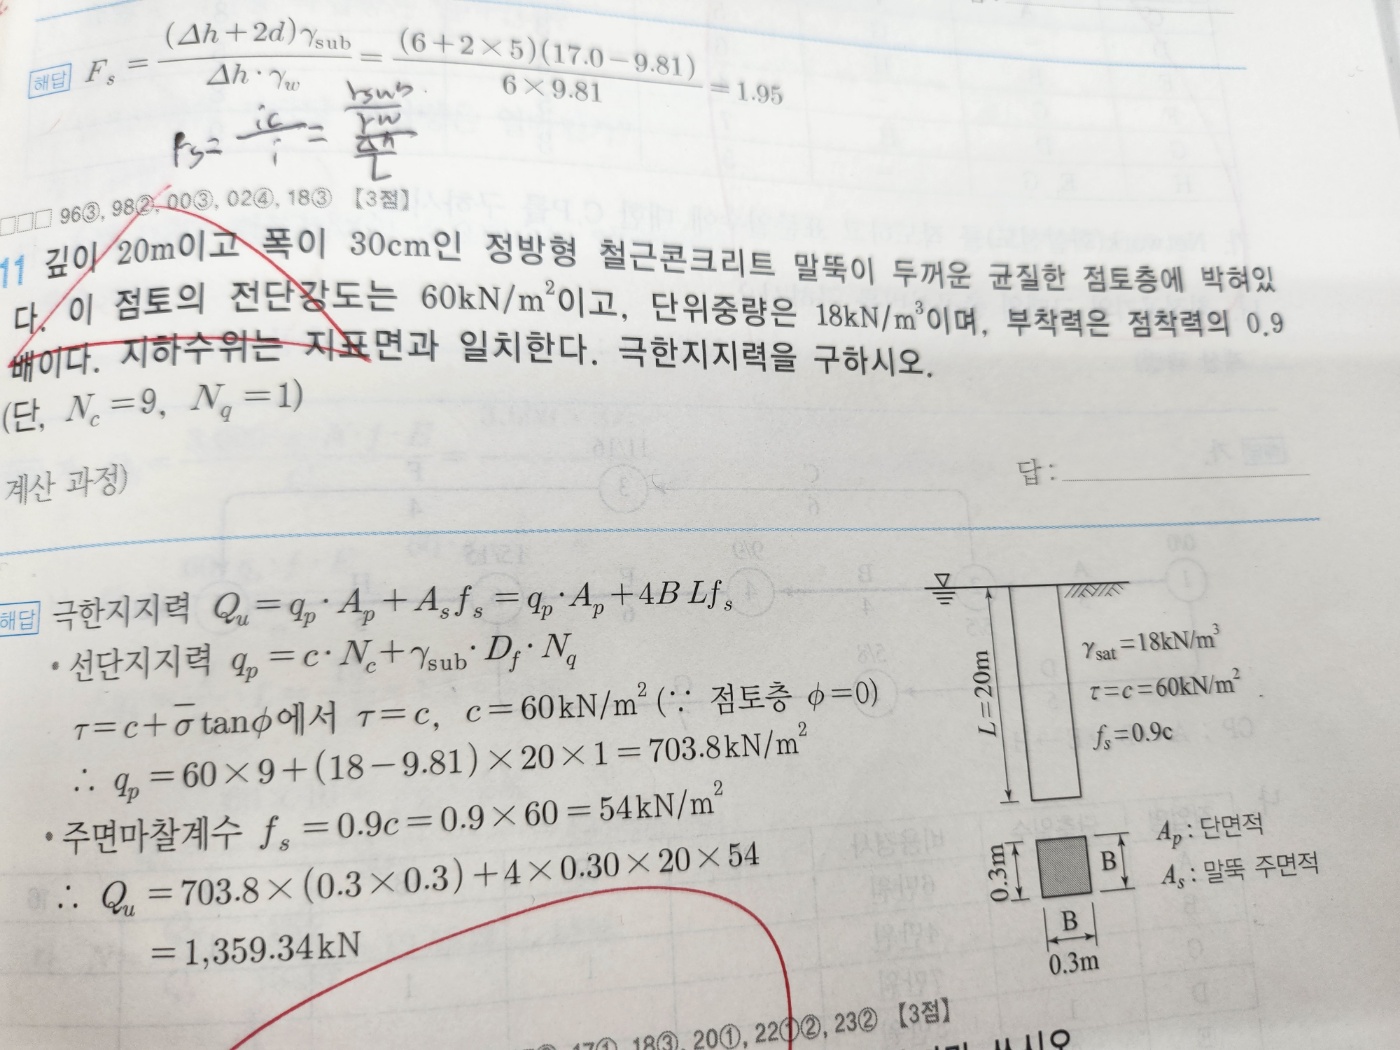 해답 F_s = (Δh+2d)γ_sub / Δh·γ_w = (6+2×5)(17.0-9.81) / 6×9.81 = 1.95
Fs = ic / i = (rsub / rw) / (Δh / L)
□□□ 96③, 98②, 00③, 02④, 18③ 【3점】
11 깊이 20m이고 폭이 30cm인 정방형 철근콘크리트 말뚝이 두꺼운 균질한 점토층에 박혀있
다. 이 점토의 전단강도는 60kN/m²이고, 단위중량은 18kN/m³이며, 부착력은 점착력의 0.9
배이다. 지하수위는 지표면과 일치한다. 극한지지력을 구하시오.
(단, N_c=9, N_q=1)
계산 과정)
답 :
해답 극한지지력 Q_u = q_p·A_p + A_s f_s = q_p·A_p + 4BLf_s
• 선단지지력 q_p = c·N_c + γ_sub·D_f·N_q
τ = c + σ̄ tanϕ에서 τ = c, c = 60kN/m² (∵ 점토층 ϕ=0)
∴ q_p = 60×9+(18-9.81)×20×1 = 703.8kN/m²
• 주면마찰계수 f_s = 0.9c = 0.9×60 = 54kN/m²
∴ Q_u = 703.8×(0.3×0.3)+4×0.30×20×54
= 1,359.34kN
L=20m
γ_sat=18kN/m³
τ=c=60kN/m²
f_s=0.9c
0.3m
B
B
0.3m
A_p : 단면적
A_s : 말뚝 주면적
18③, 20①, 22①②, 23② 【3점】